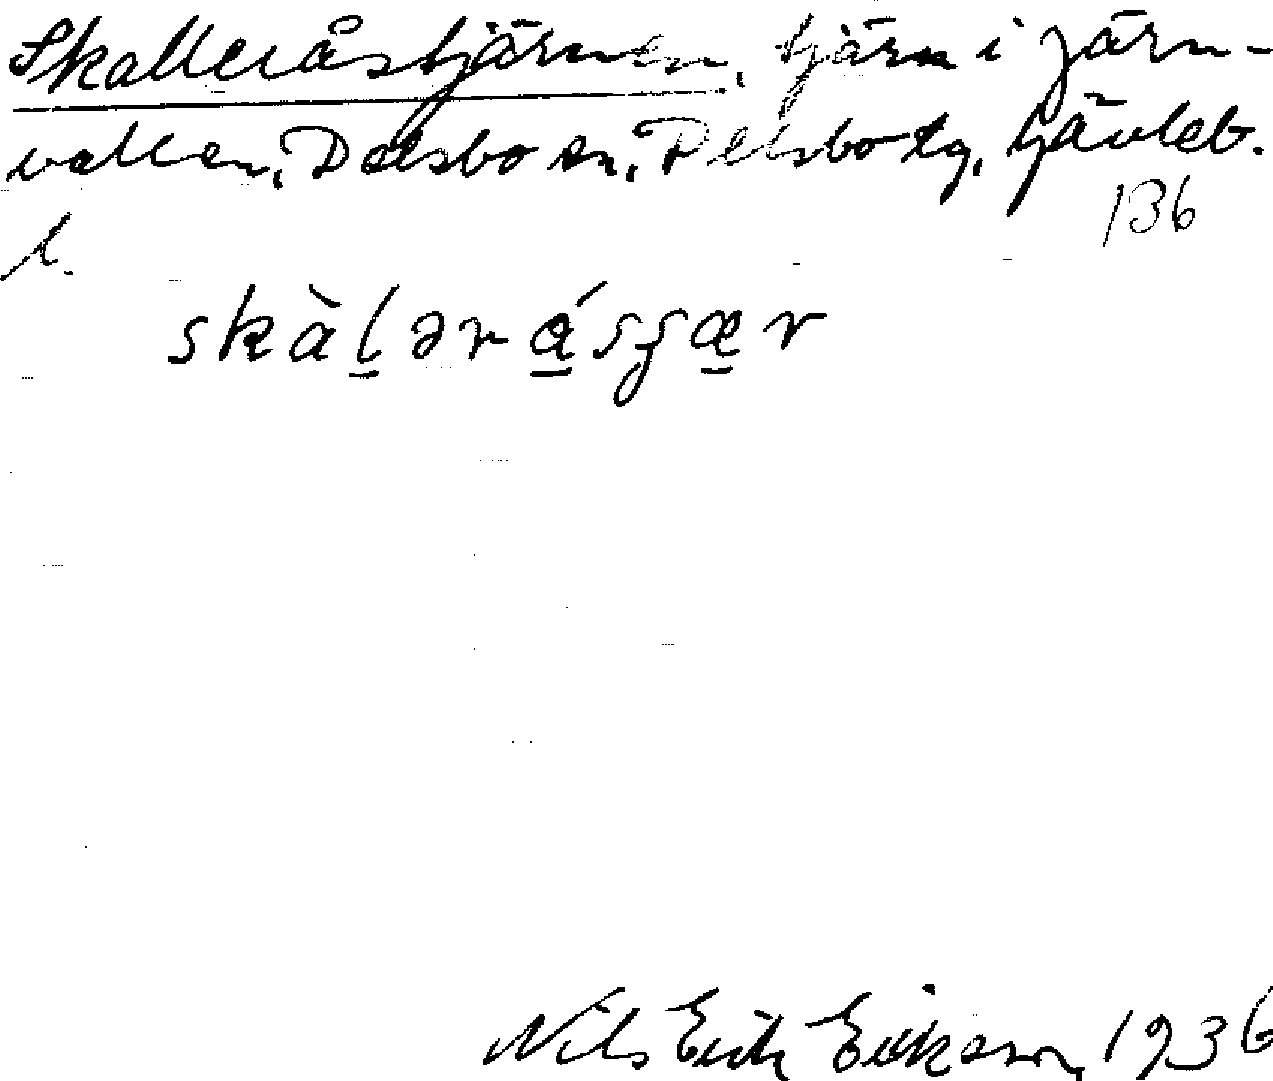 Skalleråstjärnen, tjärn i Järn-
vallen, Delsbo sn, Delsbo tg, Gävleb.
l.
136
skàl̠ərá̠sʒæ̠r
Nils Erik Erikson, 1936